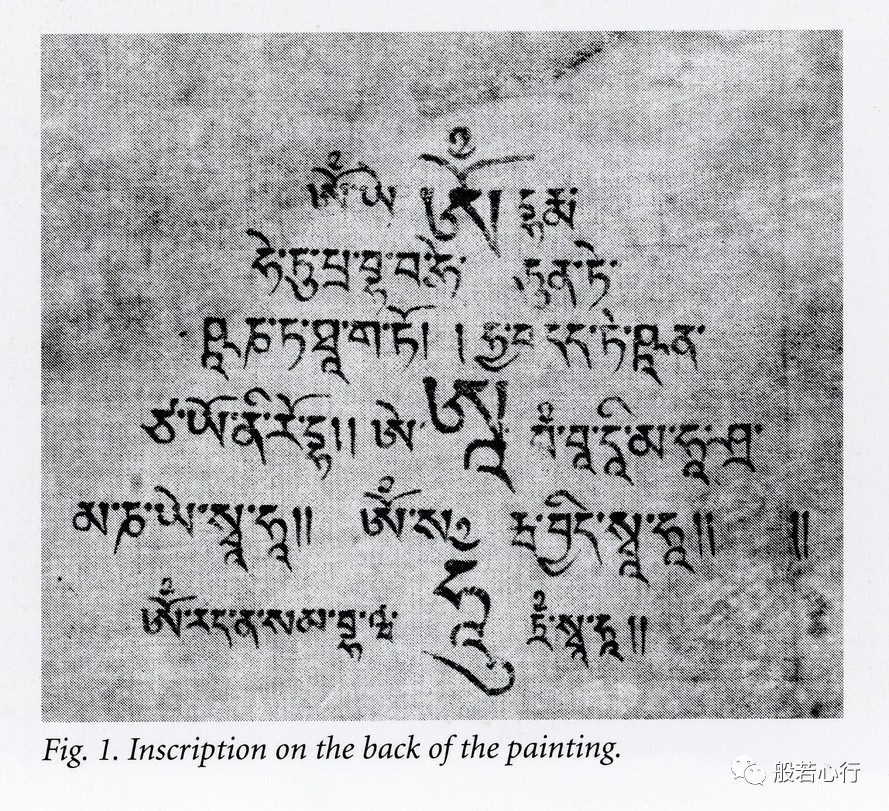 ཨོཾ་ཡེ ཨོཾ། དྷརྨཱ
ཧེ་ཏུ་པྲ་བྷ་བ་ཧེ་ ཏུན་ཏེ་
ཥཱཉྩ་ཏ་ཐཱ་ག་ཏོ། །ཧྱ་བ དད་ཏེ་ཥཱན་
ཙ་ཡོ་ནི་རོ་དྷ།། ཨེ་ ཨཱ བཾ་བཱ་དཱི་མ་ཧཱ་ཤྲ་
མ་ཎ་ཡེ་སྭཱ་ཧཱ།། ཨོཾ་ས རྦ་བིད་སྭཱ་ཧཱ།། །།
ཨོཾ་རད་ན་ས་མ་བྷ་ཝ་ ཧཱུྃ ཧྲཾ་སྭཱ་ཧཱ།།
Fig. 1. Inscription on the back of the painting.
般若心行